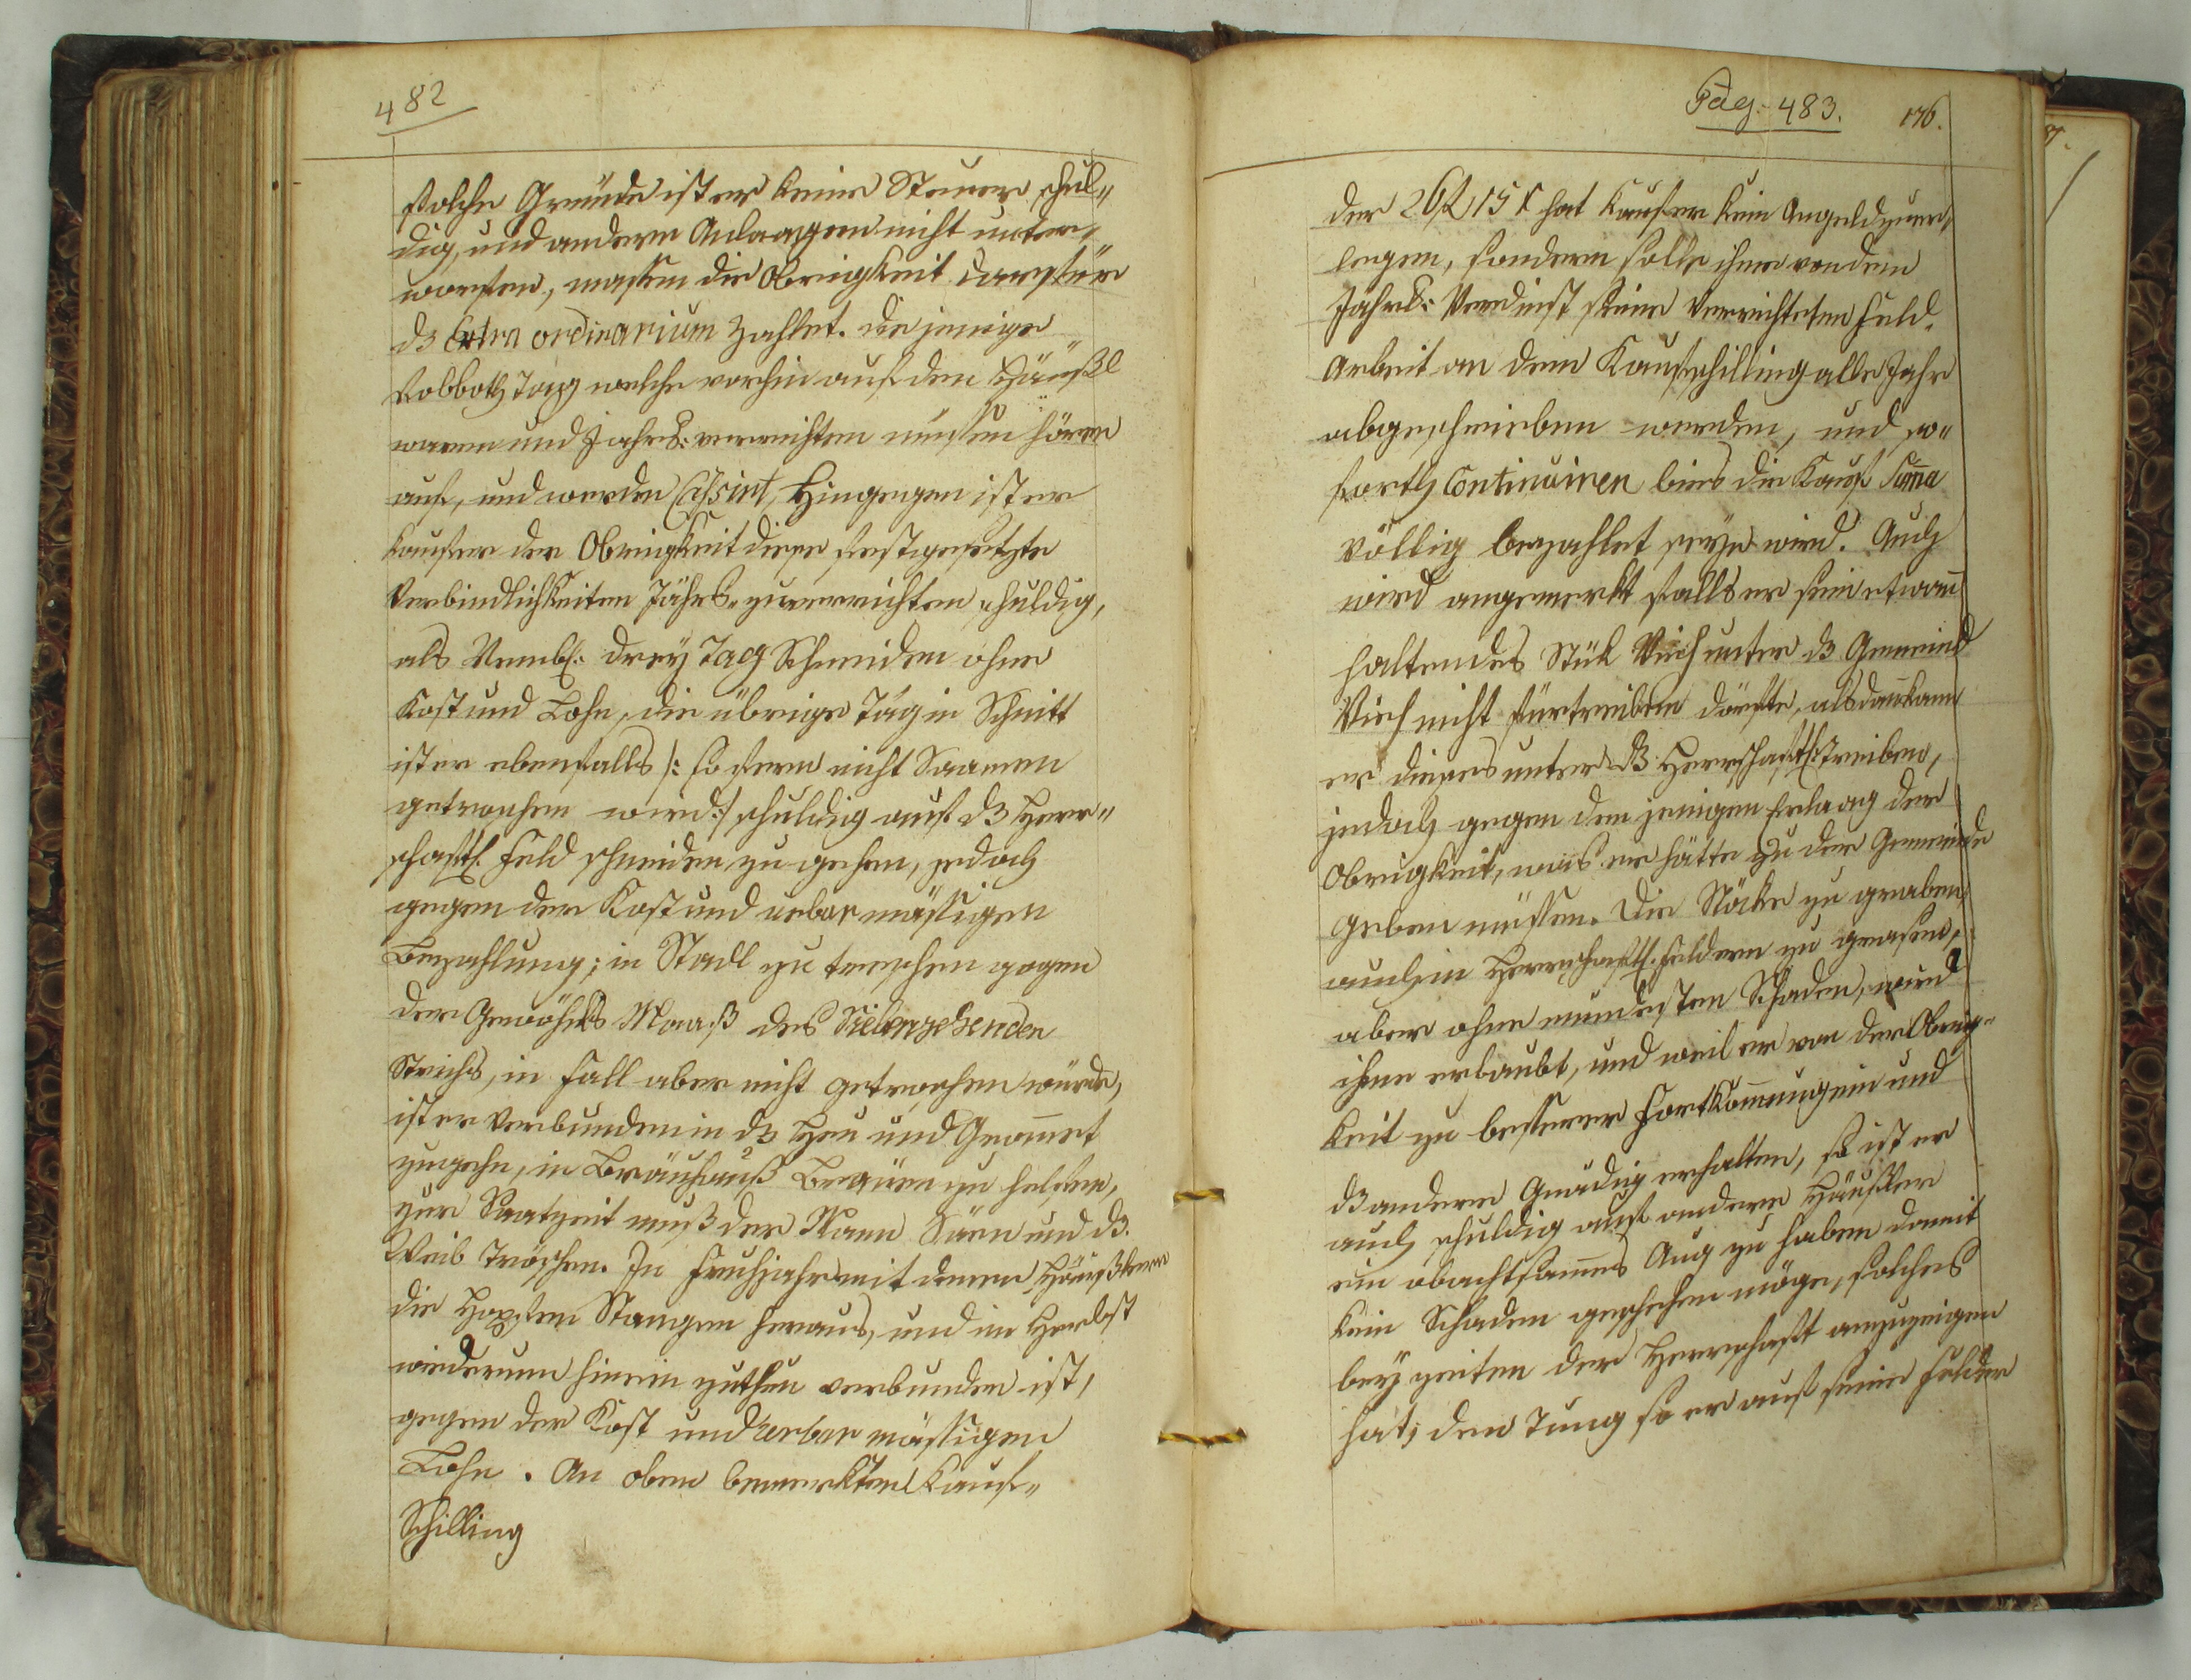 482
solche Gründe ist er keine Steuer schul„
dig, und andern Anlaagen nicht unter„
worfen, massen die Obrigkeit darfür
dz Extra ordinarium zahlet. die jenige
Robboth Tag welche vorhin auf den Häußl
waren und Jahrs: verrichten müssen hören
auf, und werden Cassirt, Hingegen ist er
Kaufer der Obrigkeit diese festgesetzte
Verbindlichkeiten Jährl. zuverrichten schuldig,
als Nembl: drey Tag Schneiden ohne
Kost und Lohn, die übrige Täg in Schnitt
ist er ebenfalls /: so fern nicht Saamen
getroschen wird :/ schuldig auf dz Herr„
schaftl. Feld schneiden zu gehen, jedoch
gegen der Kost und urbar mässigen
Bezahlung; in Stadl zu treschen gegen
der Gewöhnl. Maaß des Siebenzehenden
Strichs, in fall aber nicht getroschen würde,
ist er verbunden in dz Heu und Grommet
zugehn, in Bräuhauß Brauen zu helfen,
zur Saatzeit muß der Mann Säen und dz.
Weib Tröschen. In Fruhjahr mit denen Häußlern
die Hopfen Stangen heraus, und im Herbst
wiederum hinein zuthun verbunden ist,
gegen der Kost und urbar mässigen
Lohn. An oben bemerkten Kauf„
Schilling
Pag. 483. 176.
der 26 15 x hat Kaufer kein Angeld zuer„
legen, sondern solle ihme von dem
Jahrl: Verdinst seine Verrichteten Feld„
Arbeit an dem Kaufschilling alle Jahr
abgeschrieben werden, und so„
forth Continuiren bies die Kauf Suma
völlig bezahlet seyn wird. Auch
wird angemerkt falls er sein etwan
haltendes Stük Vieh unter dz Gemeind
Vieh nicht fürtreiben dörfte, alsdan kann
er dieses unter dz Herrschaftl: treiben,
jedoch gegen dem jenigen Erlaag der
Obrigkeit, was er hätte zu der Gemeinde
geben müssen. Die Stöcke zu graben,
auch in Herrschaftl. Feldern zu grasen,
aber ohne mindesten Schaden, wird
ihme erlaubt, und weil er von der Obrig„
keit zu besserer Fortkomung ein und
dz andere Gnädig erhalten, so ist er
auch schuldig auf andere Häußler
ein obachtsames Aug zu haben damit
kein Schaden geschehen möge, solches
bey zeiten der Herrschaft anzuzeigen
hat; den Tung so er auf seine Felder